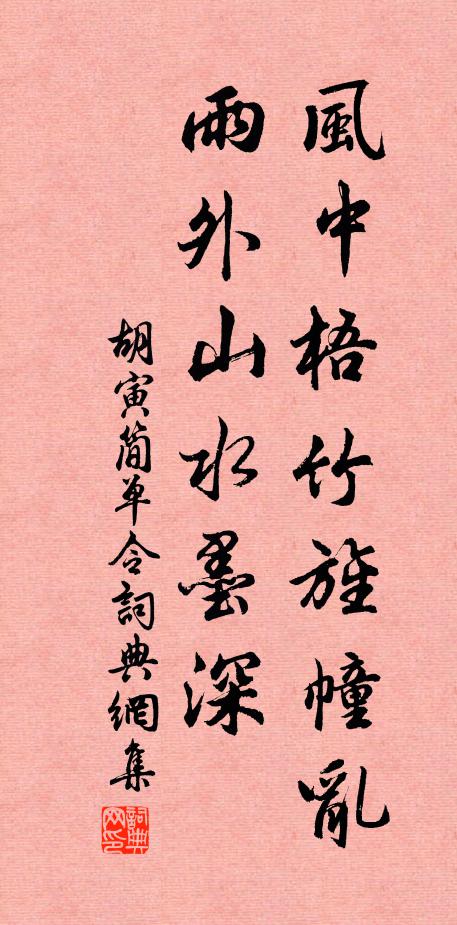 風中梧竹旌幢亂
雨外山水墨深
胡寅簡单令詞典網集
詞典网印